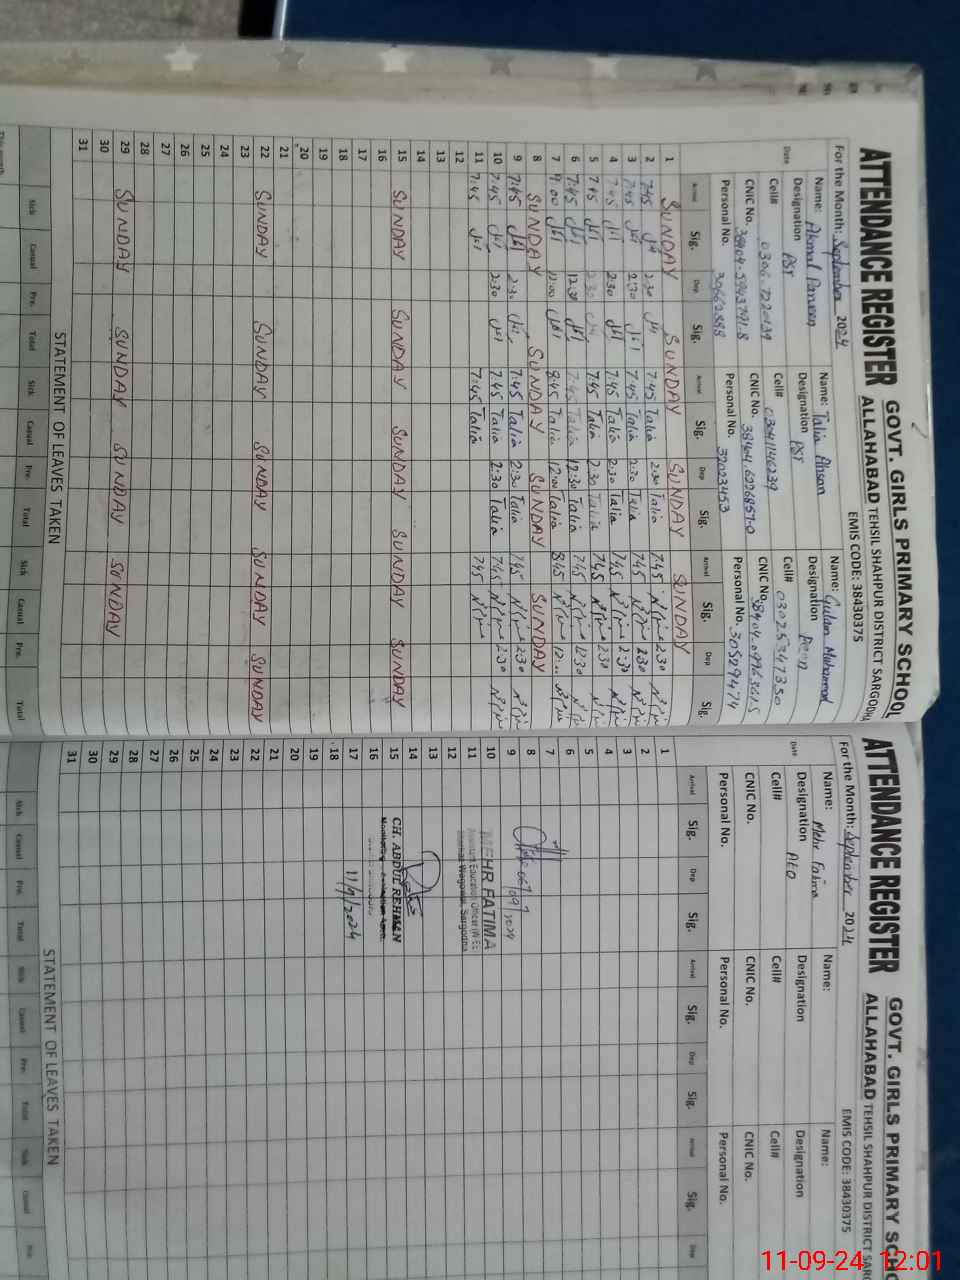 ATTENDANCE REGISTER GOVT. GIRLS PRIMARY SCHOOL
ALLAHABAD TEHSIL SHAHPUR DISTRICT SARGODHA
For the Month: September 2024 EMIS CODE: 38430375
Name: Akmal Parveen Name: Talia Ahsan Name: Gulam Muhammad
Designation PST Designation PST Designation Peon
Date
Cell# Cell# 03041146239 Cell# 03025347350
CNIC No. CNIC No. CNIC No.
Personal No. 30662888 Personal No. 32023453 Personal No. 30529474
Arrival Sig. Dep Sig. Arrival Sig. Dep Sig. Arrival Sig. Dep Sig.
1 SUNDAY SUNDAY SUNDAY SUNDAY
2 7:45 2:30 7:45 Talia 2:30 Talia 7:45 2:30
3 7:45 2:30 7:45 Talia 2:30 Talia 7:45 2:30
4 7:45 2:30 7:45 Talia 2:30 Talia 7:45 2:30
5 7:45 2:30 7:45 Talia 2:30 Talia 7:45 2:30
6 7:45 12:30 7:45 Talia 12:30 Talia 7:45 12:30
7 9:00 12:00 8:45 Talia 12:00 Talia 8:45 12:00
8 SUNDAY SUNDAY SUNDAY SUNDAY
9 7:45 2:30 7:45 Talia 2:30 Talia 7:45 2:30
10 7:45 2:30 7:45 Talia 2:30 Talia 7:45 2:30
11 7:45 7:45 Talia 7:45
12
13
14
15 SUNDAY SUNDAY SUNDAY SUNDAY SUNDAY
16
17
18
19
20
21
22 SUNDAY SUNDAY SUNDAY SUNDAY SUNDAY
23
24
25
26
27
28
29 SUNDAY SUNDAY SUNDAY SUNDAY
30
31
STATEMENT OF LEAVES TAKEN
Sick Casual Pre. Total Sick Casual Pre. Total Sick Casual Pre. Total
This month
ATTENDANCE REGISTER GOVT. GIRLS PRIMARY SCH
ALLAHABAD TEHSIL SHAHPUR DISTRICT SAR
For the Month: September 2024 EMIS CODE: 38430375
Name: Mehr Fatima Name: Name:
Designation AEO Designation Designation
Date
Cell# Cell# Cell#
CNIC No. CNIC No. CNIC No.
Personal No. Personal No. Personal No.
Arrival Sig. Dep Sig. Arrival Sig. Dep Sig. Arrival Sig. Dep
1
2
3
4
5
6
7
8
9
10 MEHR FATIMA
11 Assistant Education Officer
12
13
14
15 CH. ABDUL REHMAN
16
17 11/9/2024
18
19
20
21
22
23
24
25
26
27
28
29
30
31
STATEMENT OF LEAVES TAKEN
Sick Casual Pre. Total Sick Casual Pre. Total Sick Casual Pre.
11-09-24 12:01